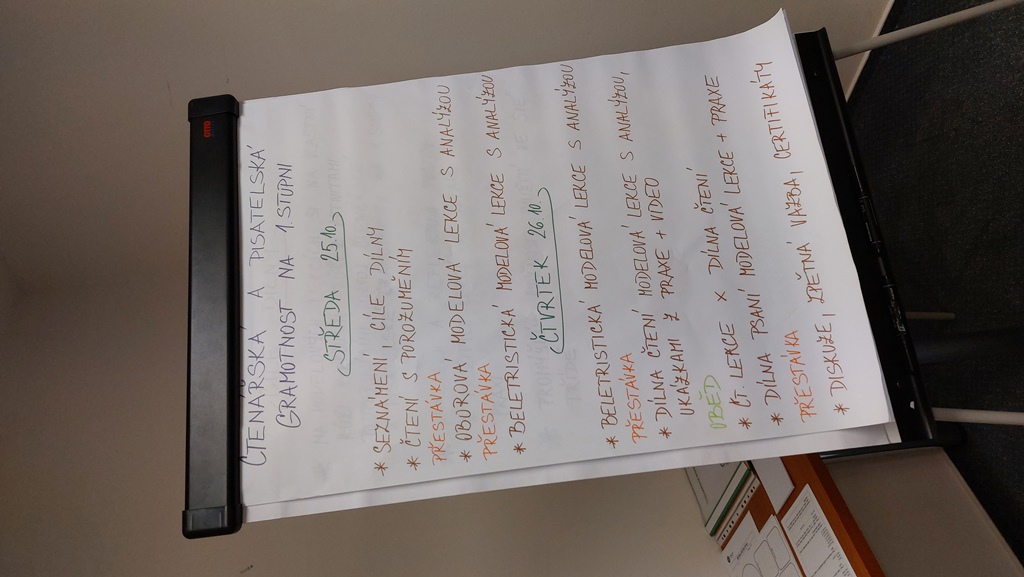 ČTENÁŘSKÁ A PISATELSKÁ
GRAMOTNOST NA 1. STUPNI
STŘEDA 25.10.
* SEZNÁMENÍ, CÍLE DÍLNY
* ČTENÍ S POROZUMĚNÍM
PŘESTÁVKA
* OBOROVÁ MODELOVÁ LEKCE S ANALÝZOU
PŘESTÁVKA
* BELETRISTICKÁ MODELOVÁ LEKCE S ANALÝZOU
ČTVRTEK 26.10.
* BELETRISTICKÁ MODELOVÁ LEKCE S ANALÝZOU
PŘESTÁVKA
* DÍLNA ČTENÍ MODELOVÁ LEKCE S ANALÝZOU,
UKÁZKAMI Z PRAXE + VIDEO
OBĚD
* ČT. LEKCE X DÍLNA ČTENÍ
* DÍLNA PSANÍ MODELOVÁ LEKCE + PRAXE
PŘESTÁVKA
* DISKUZE, ZPĚTNÁ VAZBA, CERTIFIKÁTY